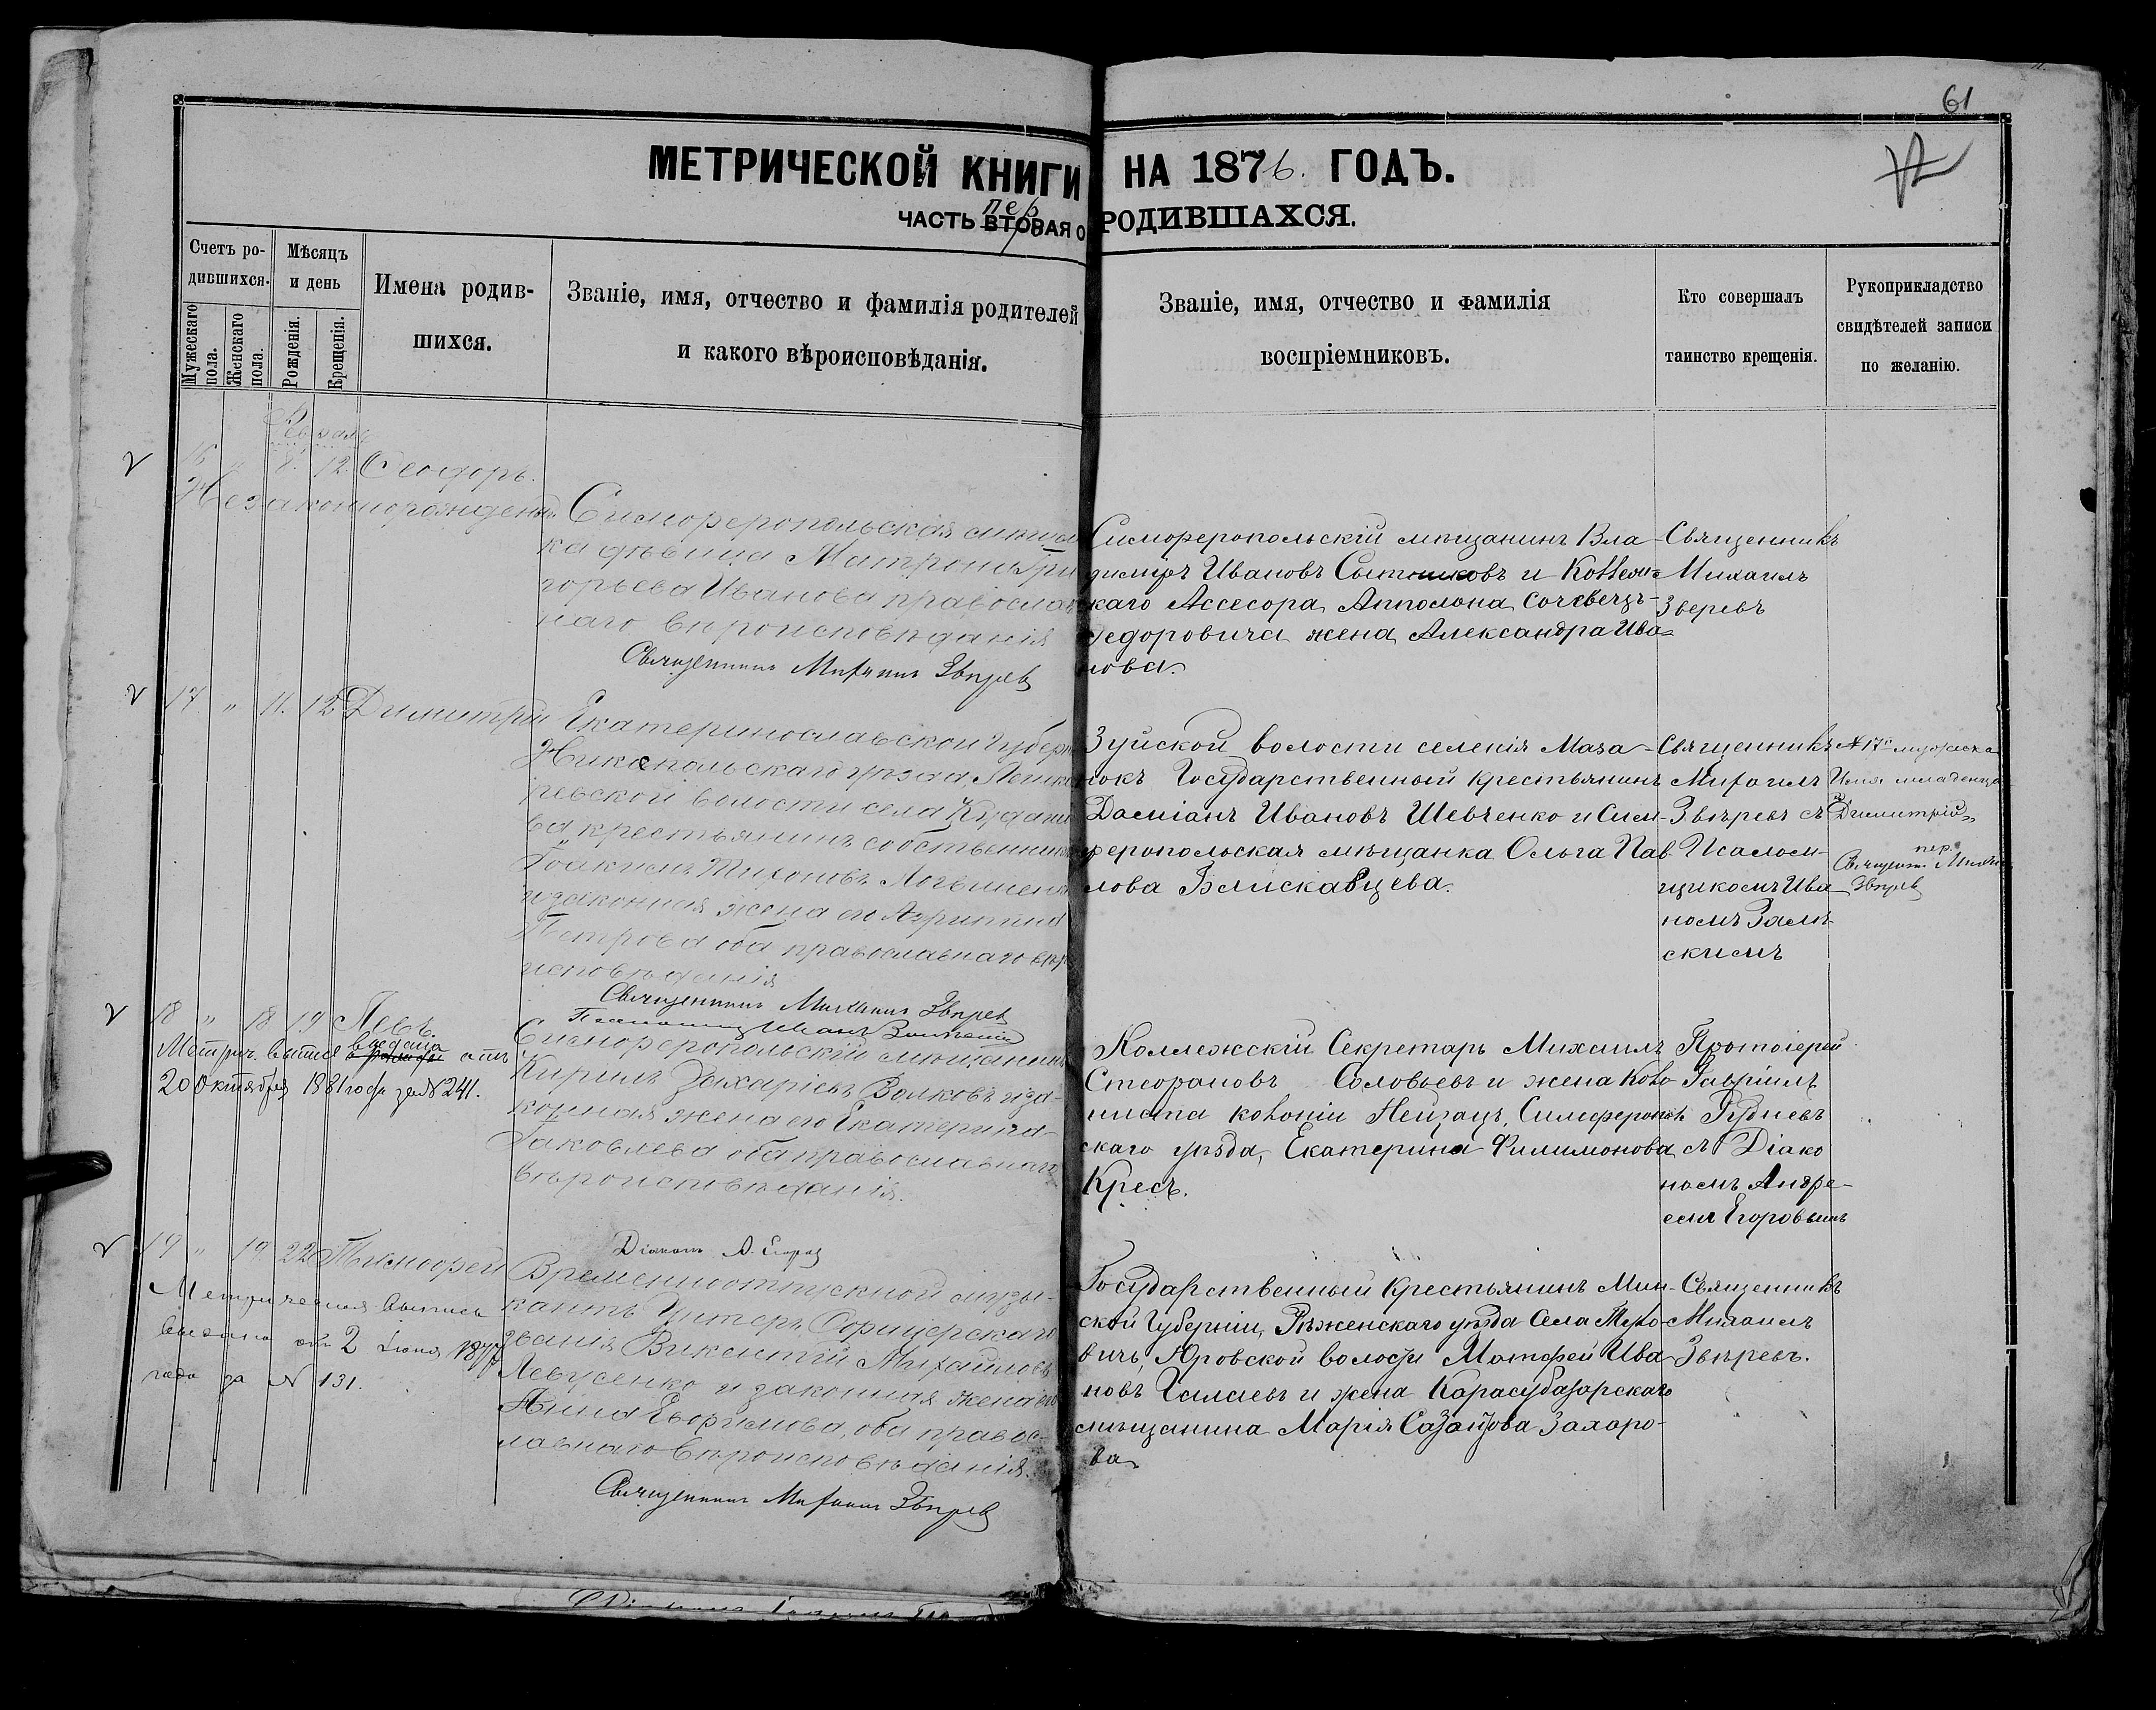 61
МЕТРИЧЕСКОЙ КНИГИ НА 1876. ГОДЪ.
пер
ЧАСТЬ ВТОРАЯ О РОДИВШАХСЯ.
Счетъ родившихся.
Мужескаго пола.
Женскаго пола.
Мѣсяцъ и день
Рожденія.
Крещенія.
Имена родив-
шихся.
Званіе, имя, отчество и фамилія родителей
и какого вѣроисповѣданія.
Званіе, имя, отчество и фамилія
воспріемниковъ.
Кто совершалъ
таинство крещенія.
Рукоприкладство
свидѣтелей записи
по желанію.
Февраль
16 " 8. 12. Ѳеодоръ.
Незаконнорожденный
Симферопольская мѣщан
ка дѣвица Матрона Гри
горьева Иванова православ
наго вѣроисповѣданія
Священникъ Михаилъ Звѣревъ
Симферопольскій мѣщанинъ Вла-
димiръ Ивановъ Сытниковъ и Коллеж-
каго Ассесора Апполона
Федоровича жена Александра Ива-
нова.
Священникъ
Михаилъ
Зверевъ
17. " 11. 12 Димитрій
Екатеринославской Губерн
уѣзда,
ревской волости села
ва крестьянинъ собственникъ
Іоакимъ Тихоновъ
и законная жена его Агрипина
Петрова оба православнаго вѣро
исповѣданія
Священникъ Михаилъ Звѣревъ
Псаломщикъ Иванъ
Зуйской волости селенія Маза-
нокъ Государственный крестьянинъ
Даміанъ Ивановъ Шевченко и Сим-
феропольская мѣщанка Ольга Пав
лова Блискавцева.
Священникъ
Михаилъ
Звѣревъ съ
Псалом-
щикомъ Ива
номъ
скимъ
№ 17
Имя младенца
Димитрій
Священ. Михаилъ
Звѣревъ
18 " 18 19 Левъ.
Метрич. выпись выдана отъ
20 Октября 1881 года за № 241.
Симферопольскій мѣщанинъ
Кирилъ Захаріевъ Волковъ и за-
конная жена его Екатерина
Іаковлева оба православнаго
вѣроисповѣданія.
Діаконъ А. Егоровъ
Коллежскій Секретарь Михаилъ
Стефановъ Соловьевъ и жена коло-
ниста колоніи Нейзацъ, Симферополь
скаго уѣзда, Екатерина Филимонова
Кресъ.
Протоіерей
Гавріилъ
Рудневъ
съ Діако
номъ Андре-
емъ Егоровымъ
19 " 19. 22 Тимофей
Метрическая выпись
выдана отъ 2 Іюня 1877
года за № 131.
Временноотпускной музы-
кантъ Унтеръ Офицерскаго
званія Викентій Михайловъ
Левусенко и законная жена его
Анна Евфимова, оба правос-
лавнаго вѣроисповѣданія.
Священникъ Михаилъ Звѣревъ
Государственный крестьянинъ Мин-
ской Губерніи, уѣзда Села
вичь, Юровской волости Матфей Ива
новъ и жена Карасубазарскаго
мѣщанина Марія Захаро-
ва
Священникъ
Михаилъ
Звѣревъ.